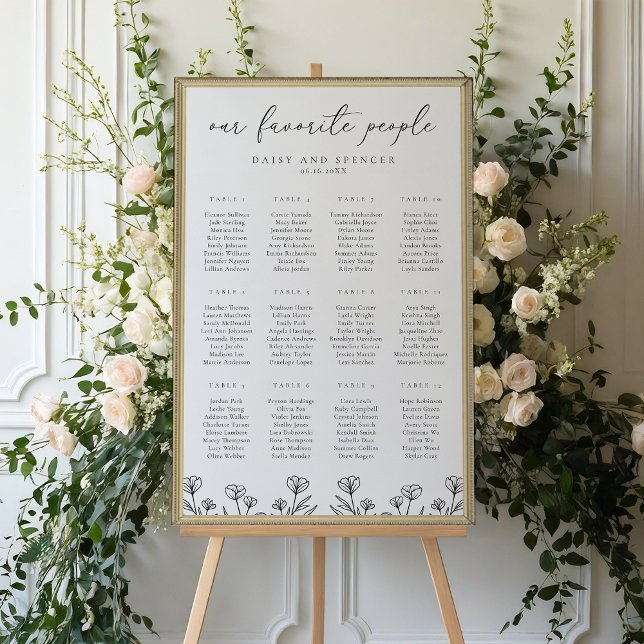 our favorite people
DAISY AND SPENCER
06.16.20XX
TABLE 1
Eleanor Sullivan
Jade Sterling
Monica Hsu
Riley Peterson
Emily Johnson
Francis Williams
Jennifer Nguyen
Lillian Andrews
TABLE 4
Carrie Yamada
Macy Baker
Jennifer Moore
Georgia Stone
Amy Richardson
Emma Richardson
Teixie Fox
Alicia Jordan
TABLE 7
Tammy Richardson
Gabrielle Joyce
Dylan Moore
Dakota James
Blake Adams
Summer Adams
Finley Young
Riley Parker
TABLE 10
Bianca Ricci
Sophie Choi
Farley Adams
Alexis Jones
Landon Brooks
Aurora Price
Brianna Castillo
Layla Sanders
TABLE 2
Heather Thomas
Lauren Matthews
Sandy McDonald
Lori Ann Johansen
Amanda Byrnes
Lucy Jacobs
Madison Lee
Marie Anderson
TABLE 5
Madison Harris
Lillian Harris
Emily Park
Angela Hastings
Cadence Andrews
Riley Alexander
Aubrey Taylor
Penelope Lopez
TABLE 8
Gianna Carver
Layla Wright
Emily Turner
Taylor Wright
Brooklyn Davidson
Emmeline Garcia
Jessica Martin
Lexi Sanchez
TABLE 11
Anya Singh
Krishna Singh
Kora Mitchell
Jacqueline Zhao
Jessa Hughes
Noelle Foster
Michelle Rodriquez
Marjorie Roberts
TABLE 3
Jordan Park
Leslie Young
Addison Walker
Charlotte Turner
Eloise Lambert
Macey Thompson
Lucy Webber
Olive Webber
TABLE 6
Peyton Hardings
Olivia Fox
Violet Jenkins
Shelby Jones
Lara Dobrowski
Rose Thompson
Anne Madison
Stella Mendez
TABLE 9
Cora Lewis
Ruby Campbell
Crystal Johnson
Amelia Smith
Kendall Smith
Isabella Diaz
Summer Collins
Drew Rogers
TABLE 12
Hope Robinson
Lauren Green
Eveline Davis
Avery Scott
Christina Wu
Ellen Wu
Harper Wood
Skylar Gray